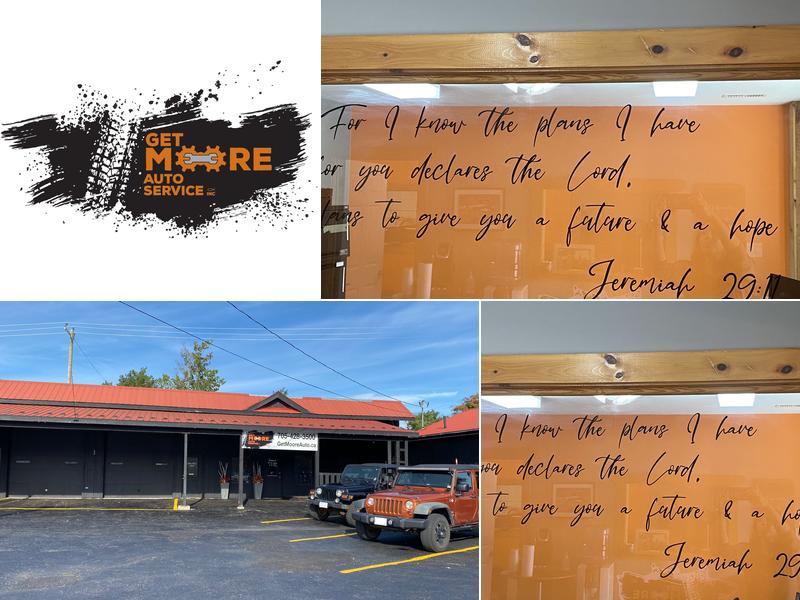 GET
MOORE
AUTO
SERVICE INC
For I know the plans I have
for you declares the Lord.
plans to give you a future & a hope
Jeremiah 29:11
MOORE
705-428-3500
GetMooreAuto.ca
I know the plans I have
you declares the Lord.
to give you a future & a
Jeremiah 29